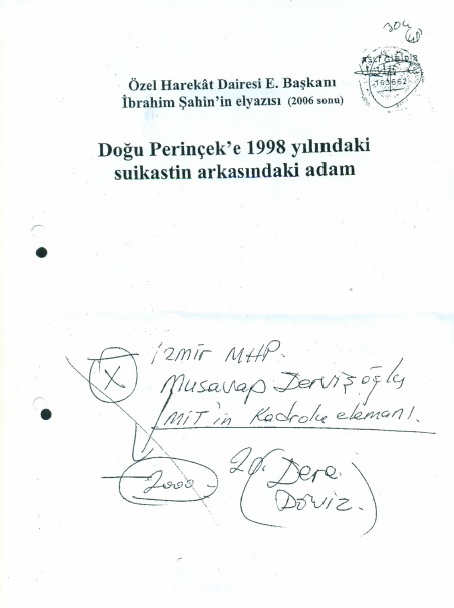 304
ASLI GİBİDİR
163662
Özel Harekât Dairesi E. Başkanı
İbrahim Şahin'in elyazısı (2006 sonu)
Doğu Perinçek'e 1998 yılındaki
suikastin arkasındaki adam
X
İzmir MHP.
Musavap Dervişoğlu
MİT'in Kadrolu elemanı.
2000
Dere
Döviz.